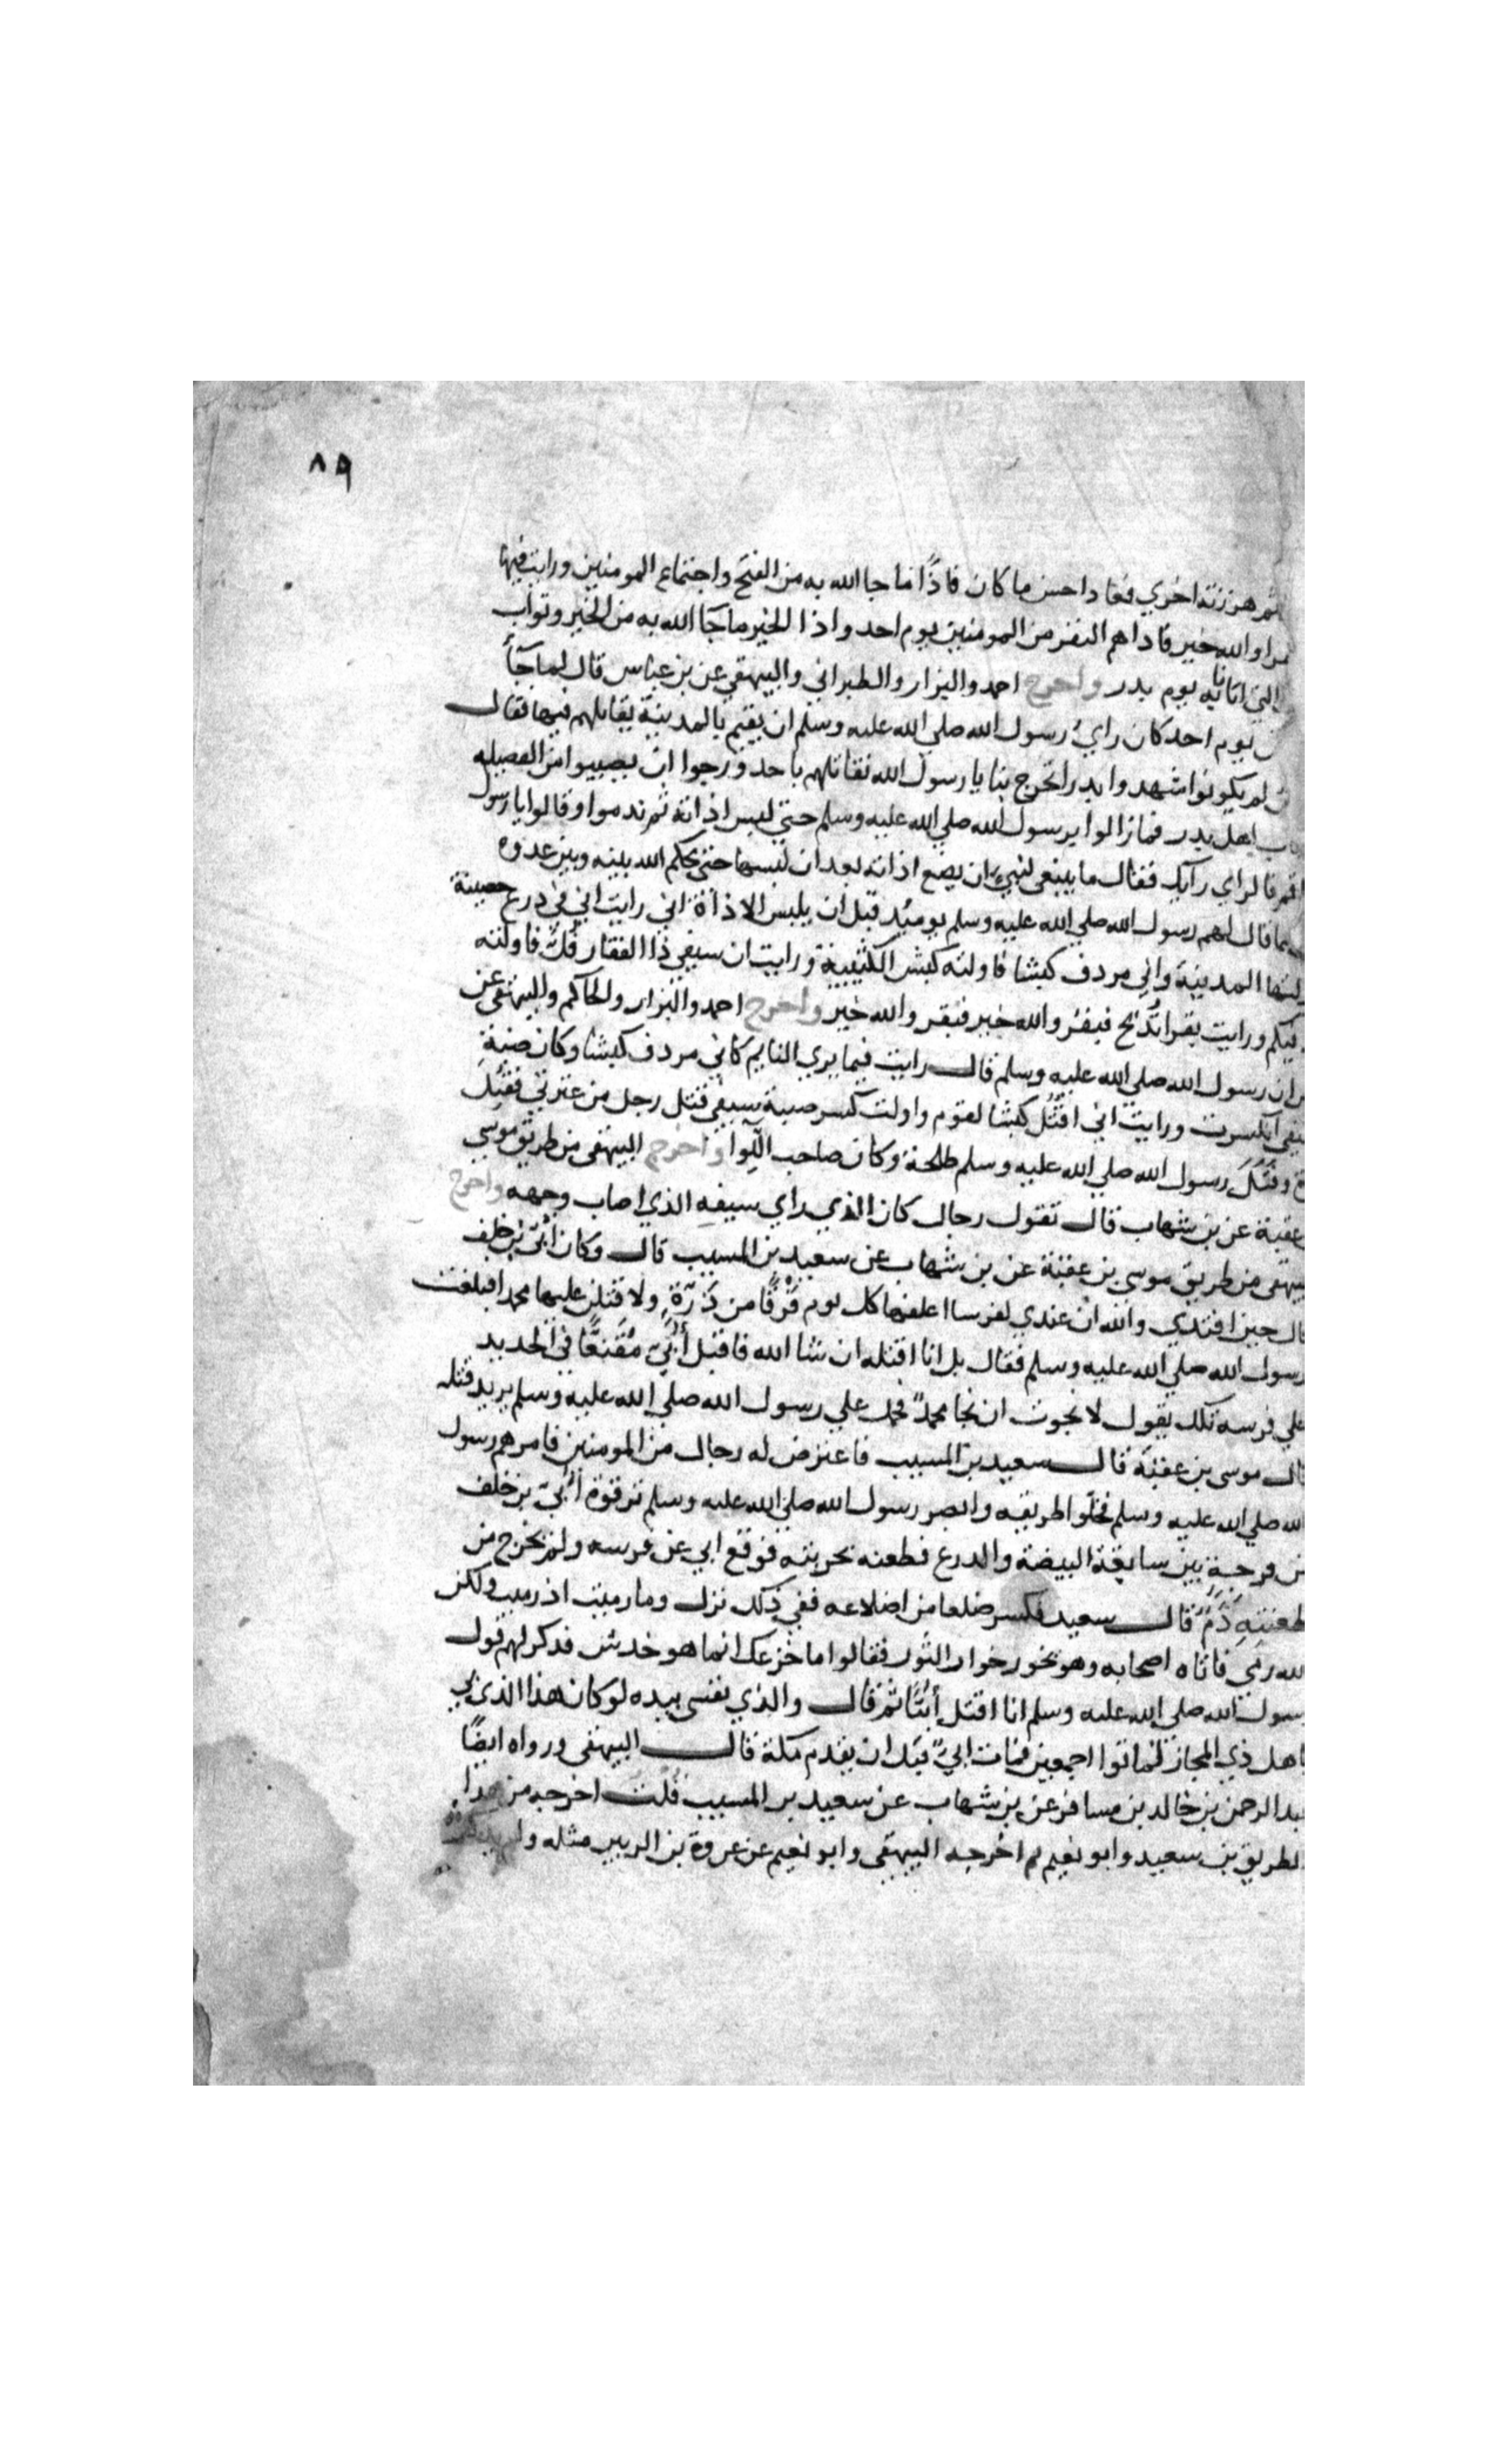 ٨٩
ثم هززته اخري فعاد احسن ما كان فاذا ما جا الله به من الفتح واجتماع المومنين ورايت فيها
والله خير فاذا هم النفر من المومنين يوم احد واذا الخير ما جآ الله به من الخير وثواب
الذي اتانا به يوم بدر واخرج احمد والبزار والطبراني والبيهقي عن بن عباس قال لما جآ
يوم احد كان راي رسول الله صلي الله عليه وسلم ان يقيم بالمدينة يقاتلهم فيها فقال
لم يكونوا شهدوا بدرا تخرج بنا يا رسول الله نقاتلهم باحد ورجوا ان يصيبوا من الفضيله
اهل بدر فما زالوا برسول الله صلي الله عليه وسلم حتي لبس اذاته ثم ندموا وقالوا يا رسول
اقم فالراي رايك فقال ما ينبغي لنبي ان يضع اذاته بعد ان لبسها حتي يحكم الله بينه وبين عدوه
قال لهم رسول الله صلي الله عليه وسلم يوميذ قبل ان يلبس الاذاة اني رايت اني في درع حصينة
المدينة واني مردف كبشا فاولته كبش الكثيبة ورايت ان سيفي ذا الفقار فل فاولته
فيكم ورايت بقرا تذبح فبقر والله خير فبقر والله خير واخرج احمد والبزار والحاكم والبيهقي عن
ان رسول الله صلي الله عليه وسلم قال رايت فيما يري النايم كاني مردف كبشا وكان ضبة
انكسرت ورايت اني اقتل كبشا لقوم واولت كسر ضبة سيفي قتل رجل من عترتي فقتل
وقتل رسول الله صلي الله عليه وسلم طلحة وكان صاحب اللوا واخرج البيهقي من طريق موسي
عقبة عن بن شهاب قال تقول رجال كان الذي راي سيفه الذي اصاب وجهه واخرج
من طريق موسي بن عقبة عن بن شهاب عن سعيد بن المسيب قال وكان ابي بن خلف
قال حين افتدي والله ان عندي لفرسا اعلفها كل يوم فرقا من ذرة ولاقتلن عليها محمدا فبلغت
رسول الله صلي الله عليه وسلم فقال بل انا اقتله ان شا الله فاقبل أبي مقنعا في الحديد
علي فرسه تلك يقول لا نجوت ان نجا محمد فحمل علي رسول الله صلي الله عليه وسلم يريد قتله
قال موسي بن عقبة قال سعيد بن المسيب فاعترض له رجال من المومنين فامرهم رسول
الله صلي الله عليه وسلم فخلوا طريقه وابصر رسول الله صلي الله عليه وسلم ترقوة أبي بن خلف
من فرجة بين سابغة البيضة والدرع فطعنه بحربته فوقع ابي عن فرسه ولم يخرج من
طعنته دم قال سعيد فكسر ضلعا من اضلاعه ففي ذلك نزل وما رميت اذ رميت ولكن
الله رمي فاتاه اصحابه وهو يخور خوار الثور فقالوا ما جزعك انما هو خدش فذكر لهم قول
رسول الله صلي الله عليه وسلم انا اقتل أبيا ثم قال والذي نفسي بيده لو كان هذا الذي بي
باهل ذي المجاز لماتوا اجمعين فمات ابي قبل ان يقدم مكة قال البيهقي ورواه ايضا
عبد الرحمن بن خالد بن مسافر عن بن شهاب عن سعيد بن المسيب قلت اخرجه من هذا
الطريق بن سعيد وابو نعيم ثم اخرجه البيهقي وابو نعيم عن عروة بن الزبير مثله